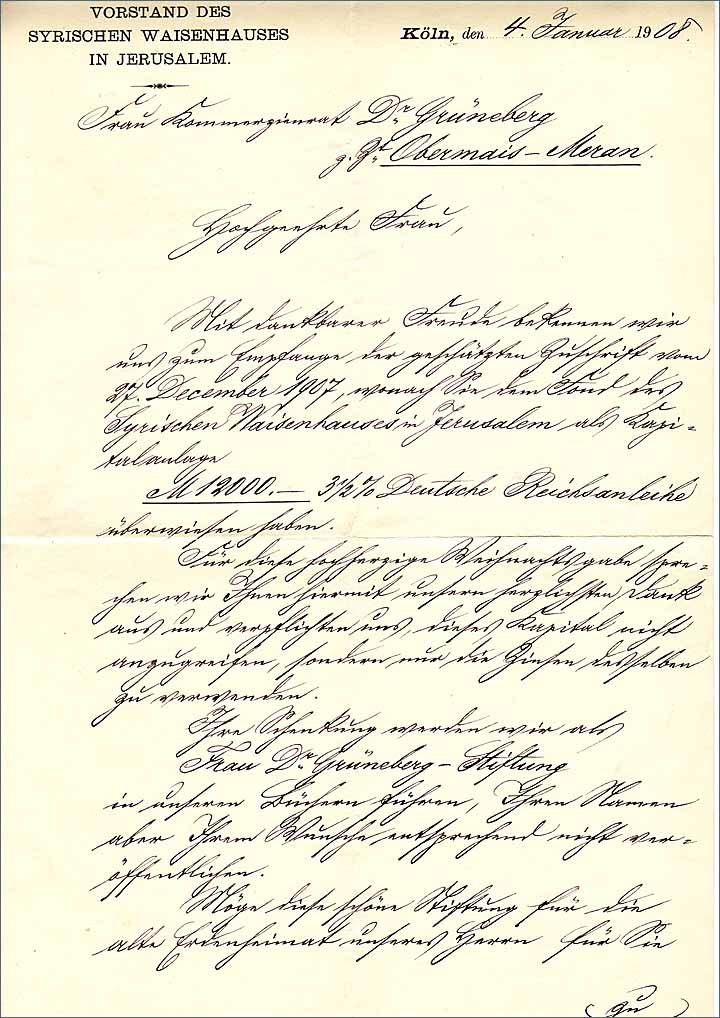 VORSTAND DES
SYRISCHEN WAISENHAUSES
IN JERUSALEM.
Köln, den 4. Januar 1908.
Frau Kommerzienrat Dr. Grüneberg
z. Zt. Obermais – Meran.
Hochgeehrte Frau,
Mit dankbarer Freude bekennen wir
uns zum Empfange der geschätzten Zuschrift vom
27. December 1907, wonach Sie dem Fond des
Syrischen Waisenhauses in Jerusalem als Kapi-
talanlage
M 12000.— 3½% Deutsche Reichsanleihe
überwiesen haben.
Für diese hochherzige Weihnachtsgabe spre-
chen wir Ihnen hiermit unsern herzlichsten Dank
aus und verpflichten uns, dieses Kapital nicht
anzugreifen, sondern nur die Zinsen desselben
zu verwenden.
Ihre Schenkung werden wir als
Frau Dr. Grüneberg – Stiftung
in unseren Büchern führen, Ihren Namen
aber Ihrem Wunsche entsprechend nicht ver-
öffentlichen.
Möge diese schöne Stiftung für die
alte Erdenheimat unseres Herrn für Sie
(zu)